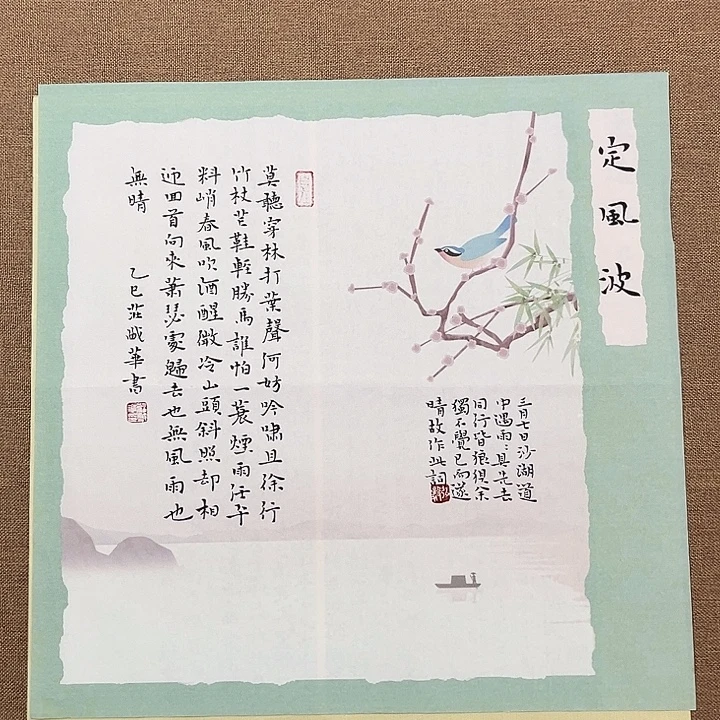 定風波
三月七日沙湖道
中遇雨〻具先去
同行皆狼狽余
獨不覺已而遂
晴故作此詞
莫聽穿林打葉聲何妨吟嘯且徐行
竹杖芒鞋輕勝馬誰怕一蓑煙雨任平
料峭春風吹酒醒微冷山頭斜照却相
迎回首向來蕭瑟處歸去也無風雨也
無晴 乙巳莊華書